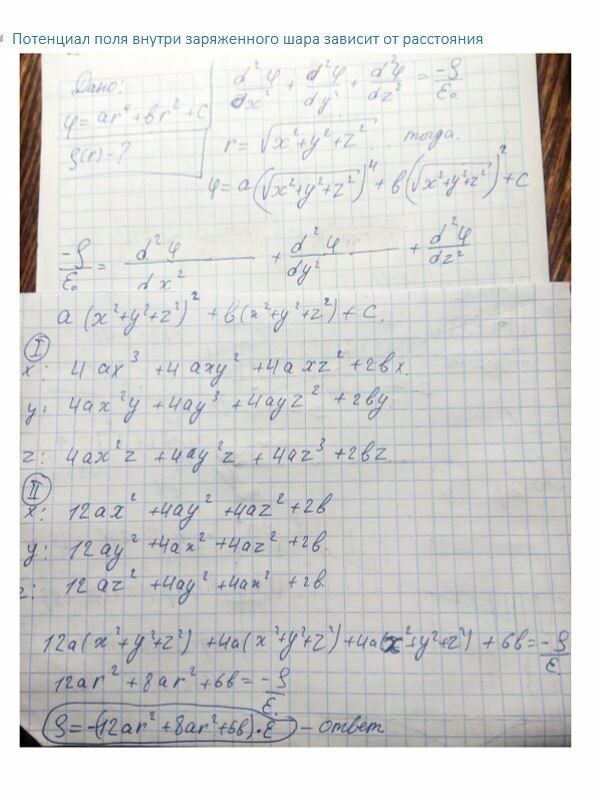 Потенциал поля внутри заряженного шара зависит от расстояния
Дано:
φ = ar⁴ + вr² + С
ρ(r) - ?
d²φ/dx² + d²φ/dy² + d²φ/dz² = -ρ/ε₀
r = √(x²+y²+z²) тогда.
φ = a(√(x²+y²+z²))⁴ + в(√(x²+y²+z²))² + С
-ρ/ε₀ = d²φ/dx² + d²φ/dy² + d²φ/dz²
a(x²+y²+z²)² + в(x²+y²+z²) + С.
I
x: 4ax³ + 4axy² + 4axz² + 2вx.
y: 4ax²y + 4ay³ + 4ayz² + 2вy.
z: 4ax²z + 4ay²z + 4az³ + 2вz
II
x: 12ax² + 4ay² + 4az² + 2в
y: 12ay² + 4ax² + 4az² + 2в.
z: 12az² + 4ay² + 4ax² + 2в.
12a(x²+y²+z²) + 4a(x²+y²+z²) + 4a(x²+y²+z²) + 6в = -ρ/ε.
12ar² + 8ar² + 6в = -ρ/ε.
ρ = -(12ar² + 8ar² + 6в)·ε - ответ